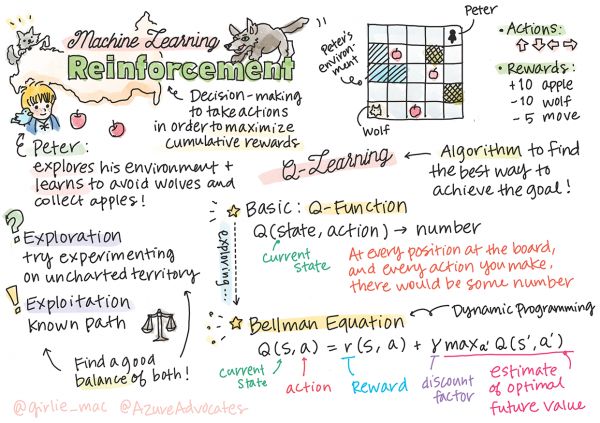 Machine Learning
Reinforcement
Decision-making
to take actions
in order to maximize
cumulative rewards
Peter:
explores his environment +
learns to avoid wolves and
collect apples!
Peter's
environ-
ment
Peter
wolf
• Actions:
⇧ ⇩ ⇦ ⇨
• Rewards:
+10 apple
-10 wolf
-5 move
Q-Learning
Algorithm to find
the best way to
achieve the goal!
? Exploration
try experimenting
on uncharted territory
! Exploitation
known path
Find a good
balance of both!
exploring...
Basic: Q-Function
Q(state, action) → number
current
state
At every position at the board,
and every action you make,
there would be some number
Bellman Equation
Dynamic Programming
Q(s, a) = r(s, a) + γ maxₐ' Q(s', a')
current
state
action
Reward
discount
factor
estimate
of optimal
future value
@girlie_mac @AzureAdvocates